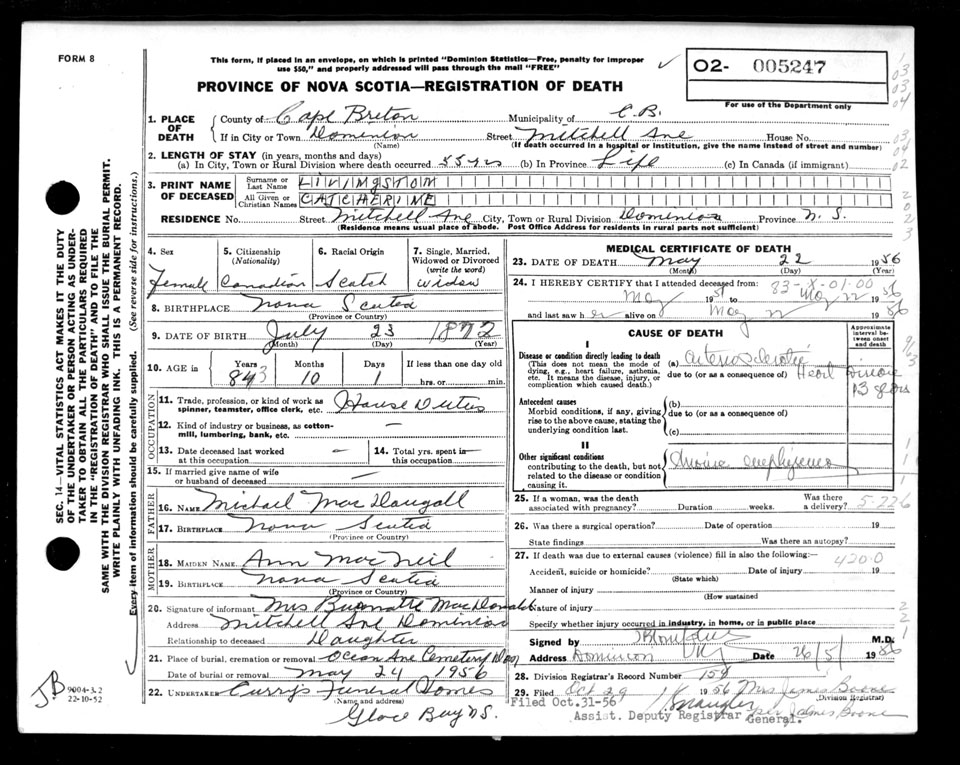 FORM 8
This form, if placed in an envelope, on which is printed "Dominion Statistics—Free, penalty for improper
use $50," and properly addressed will pass through the mail "FREE"
PROVINCE OF NOVA SCOTIA—REGISTRATION OF DEATH
O2- 005247
For use of the Department only
1. PLACE OF DEATH
County of Cape Breton Municipality of C.B.
If in City or Town Dominion Street Mitchell Ave House No.
(Name) (If death occurred in a hospital or institution, give the name instead of street and number)
2. LENGTH OF STAY (in years, months and days)
(a) In City, Town or Rural Division where death occurred 55 yrs (b) In Province Life (c) In Canada (if immigrant)
3. PRINT NAME OF DECEASED
Surname or Last Name LIVINGSTON
All Given or Christian Names CATCHERINE
RESIDENCE No. Street Mitchell Ave City, Town or Rural Division Dominion Province N. S.
(Residence means usual place of abode. Post Office Address for residents in rural parts not sufficient)
4. Sex Female
5. Citizenship (Nationality) Canadian
6. Racial Origin Scotch
7. Single, Married, Widowed or Divorced (write the word) widow
8. BIRTHPLACE Nova Scotia
(Province or Country)
9. DATE OF BIRTH July 23 1872
(Month) (Day) (Year)
10. AGE in Years 83 Months 10 Days 1 If less than one day old hrs. or min.
OCCUPATION
11. Trade, profession, or kind of work as spinner, teamster, office clerk, etc. House Duties
12. Kind of industry or business, as cotton-mill, lumbering, bank, etc. —
13. Date deceased last worked at this occupation —
14. Total yrs. spent in this occupation —
15. If married give name of wife or husband of deceased —
FATHER
16. NAME Michael MacDougall
17. BIRTHPLACE Nova Scotia
(Province or Country)
MOTHER
18. MAIDEN NAME Ann MacNeil
19. BIRTHPLACE Nova Scotia
(Province or Country)
20. Signature of informant Mrs MacDonald
Address Mitchell Ave Dominion
Relationship to deceased Daughter
21. Place of burial, cremation or removal Ocean Ave Cemetery
Date of burial or removal May 24 1956
22. UNDERTAKER Curry's Funeral Homes
(Name and address)
Glace Bay N.S.
MEDICAL CERTIFICATE OF DEATH
23. DATE OF DEATH May 22 1956
(Month) (Day) (Year)
24. I HEREBY CERTIFY that I attended deceased from:
May 1951 to May 22 1956
and last saw her alive on May 22 1956
83-X-01-00
CAUSE OF DEATH
Approximate interval between onset and death
I
Disease or condition directly leading to death
(This does not mean the mode of dying, e.g., heart failure, asthenia, etc. It means the disease, injury, or complication which caused death.)
(a) arteriosclerotic
due to (or as a consequence of) Heart Disease
Antecedent causes
Morbid conditions, if any, giving rise to the above cause, stating the underlying condition last.
(b)
due to (or as a consequence of)
(c)
II
Other significant conditions
contributing to the death, but not related to the disease or condition causing it.
emphysema
25. If a woman, was the death associated with pregnancy? Duration weeks. Was there a delivery?
5-226
26. Was there a surgical operation? Date of operation 19
State findings Was there an autopsy?
27. If death was due to external causes (violence) fill in also the following:
420.0
Accident, suicide or homicide? Date of injury 19
(State which)
Manner of injury
(How sustained)
Nature of injury
Specify whether injury occurred in industry, in home, or in public place
Signed by M.D.
Address Dominion Date 26/5/ 1956
28. Division Registrar's Record Number 154
29. Filed Oct 29 1956 Mrs James Boone
(Division Registrar)
per James Boone
Filed Oct.31-56
Assist. Deputy Registrar General.
SEC. 14—VITAL STATISTICS ACT MAKES IT THE DUTY
OF THE UNDERTAKER OR PERSON ACTING AS UNDER-
TAKER TO OBTAIN ALL THE PARTICULARS REQUIRED
IN THE "REGISTRATION OF DEATH" AND TO FILE THE
SAME WITH THE DIVISION REGISTRAR WHO SHALL ISSUE THE BURIAL PERMIT.
WRITE PLAINLY WITH UNFADING INK. THIS IS A PERMANENT RECORD.
Every item of information should be carefully supplied. (See reverse side for instructions.)
JB
9004-3.2
22-10-52